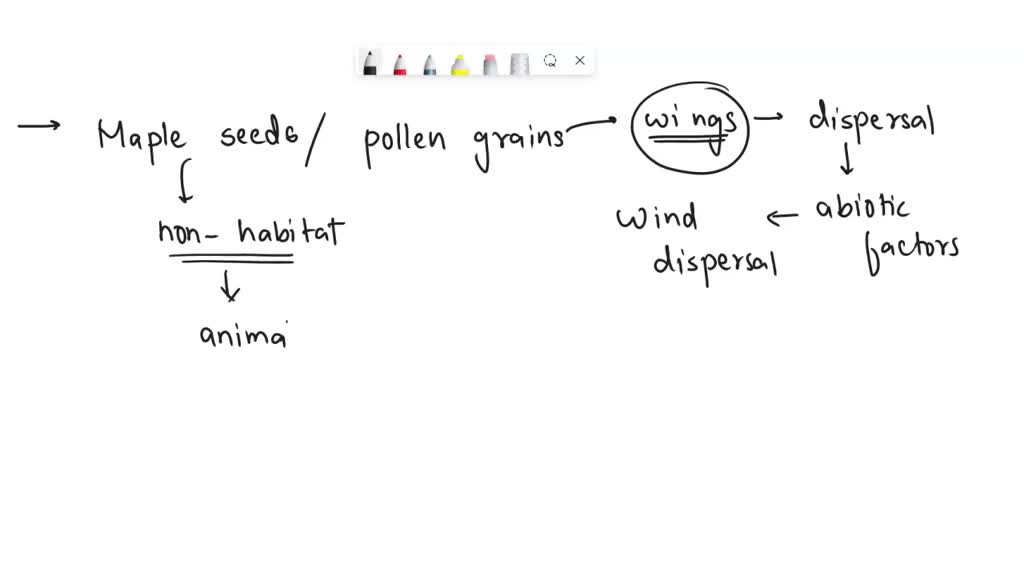 → Maple seeds / pollen grains → wings → dispersal
↓ ↓
non-habitat
wind ← abiotic
dispersal factors
↓
anima